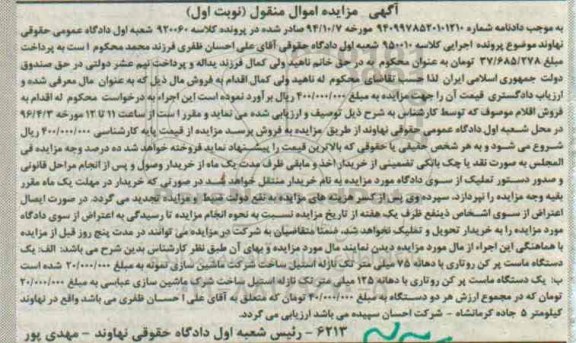 آگهی مزایده اموال منقول (نوبت اول)
به موجب دادنامه شماره ۹۴۰۹۹۷۸۵۲۰۱۰۱۲۱۰ مورخه ۹۴/۱۰/۷ صادر شده در پرونده کلاسه ۹۲۰۰۶۰ شعبه اول دادگاه عمومی حقوقی
نهاوند موضوع پرونده اجرایی کلاسه ۹۵۰۰۱۰ شعبه اول دادگاه حقوقی آقای علی احسان ظفری فرزند محمد محکوم است به پرداخت
مبلغ ۳۷/۶۸۵/۲۷۸ تومان به عنوان محکوم به در حق خانم ناهید ولی کمال فرزند یداله و پرداخت نیم عشر دولتی در حق صندوق
دولت جمهوری اسلامی ایران لذا حسب تقاضای محکوم له ناهید ولی کمال اقدام به فروش مال ذیل که به عنوان مال معرفی شده و
ارزیاب دادگستری قیمت آن را جهت مزایده به مبلغ ۴۰۰/۰۰۰/۰۰۰ ریال برآورد نموده است این اجراء به درخواست محکوم له اقدام به
فروش اقلام موصوف که توسط کارشناس به شرح ذیل توصیف و ارزیابی شده می نماید و مقرر است از ساعت ۱۱ تا ۱۲ مورخه ۹۶/۴/۳
در محل شعبه اول دادگاه عمومی حقوقی نهاوند از طریق مزایده به فروش برسد مزایده از قیمت پایه کارشناسی ۴۰۰/۰۰۰/۰۰۰ ریال
شروع می شود و به هر شخص حقیقی یا حقوقی که بالاترین قیمت را پیشنهاد نماید فروخته خواهد شد ده درصد وجه مزایده فی
المجلس به صورت نقد یا چک بانکی تضمینی از خریدار اخذ و مابقی ظرف مدت یک ماه از خریدار وصول و پس از انجام مراحل قانونی
و صدور دستور تملیک از سوی دادگاه مورد مزایده به نام خریدار منتقل خواهد شد در صورتی که خریدار در مهلت یک ماه مقرر
بقیه وجه مزایده را نپردازد، سپرده وی پس از کسر هزینه های مزایده به نفع دولت ضبط و مزایده تجدید می گردد. در صورت ایصال
اعتراض از سوی اشخاص ذینفع ظرف یک هفته از تاریخ مزایده نسبت به نحوه انجام مزایده تا رسیدگی به اعتراض از سوی دادگاه
مورد مزایده را به خریدار تحویل و تملیک نخواهد شد. ضمنا متقاضیان به شرکت در مزایده می توانند در مدت پنج روز قبل از مزایده
با هماهنگی این اجراء از مال مورد مزایده دیدن نمایند. مال مورد مزایده و بهای آن طبق نظر کارشناس بدین شرح می باشد: الف: یک
دستگاه ماست پر کن روتاری با دهانه ۷۵ میلی متر تک نازله استیل ساخت شرکت ماشین سازی نمونه به مبلغ ۲۰/۰۰۰/۰۰۰ شده است
ب: یک دستگاه ماست پر کن روتاری با دهانه ۱۲۵ میلی متر تک نازله استیل ساخت شرکت ماشین سازی عباسی به مبلغ ۲۰/۰۰۰/۰۰۰
تومان که در مجموع ارزش هر دو دستگاه به مبلغ ۴۰/۰۰۰/۰۰۰ تومان که متعلق به آقای علی احسان ظفری می باشد واقع در نهاوند
کیلومتر ۵ جاده کرمانشاه - شرکت احسان سپیده می باشد ارزیابی می گردد.
۶۲۱۳ - رئیس شعبه اول دادگاه حقوقی نهاوند - مهدی پور